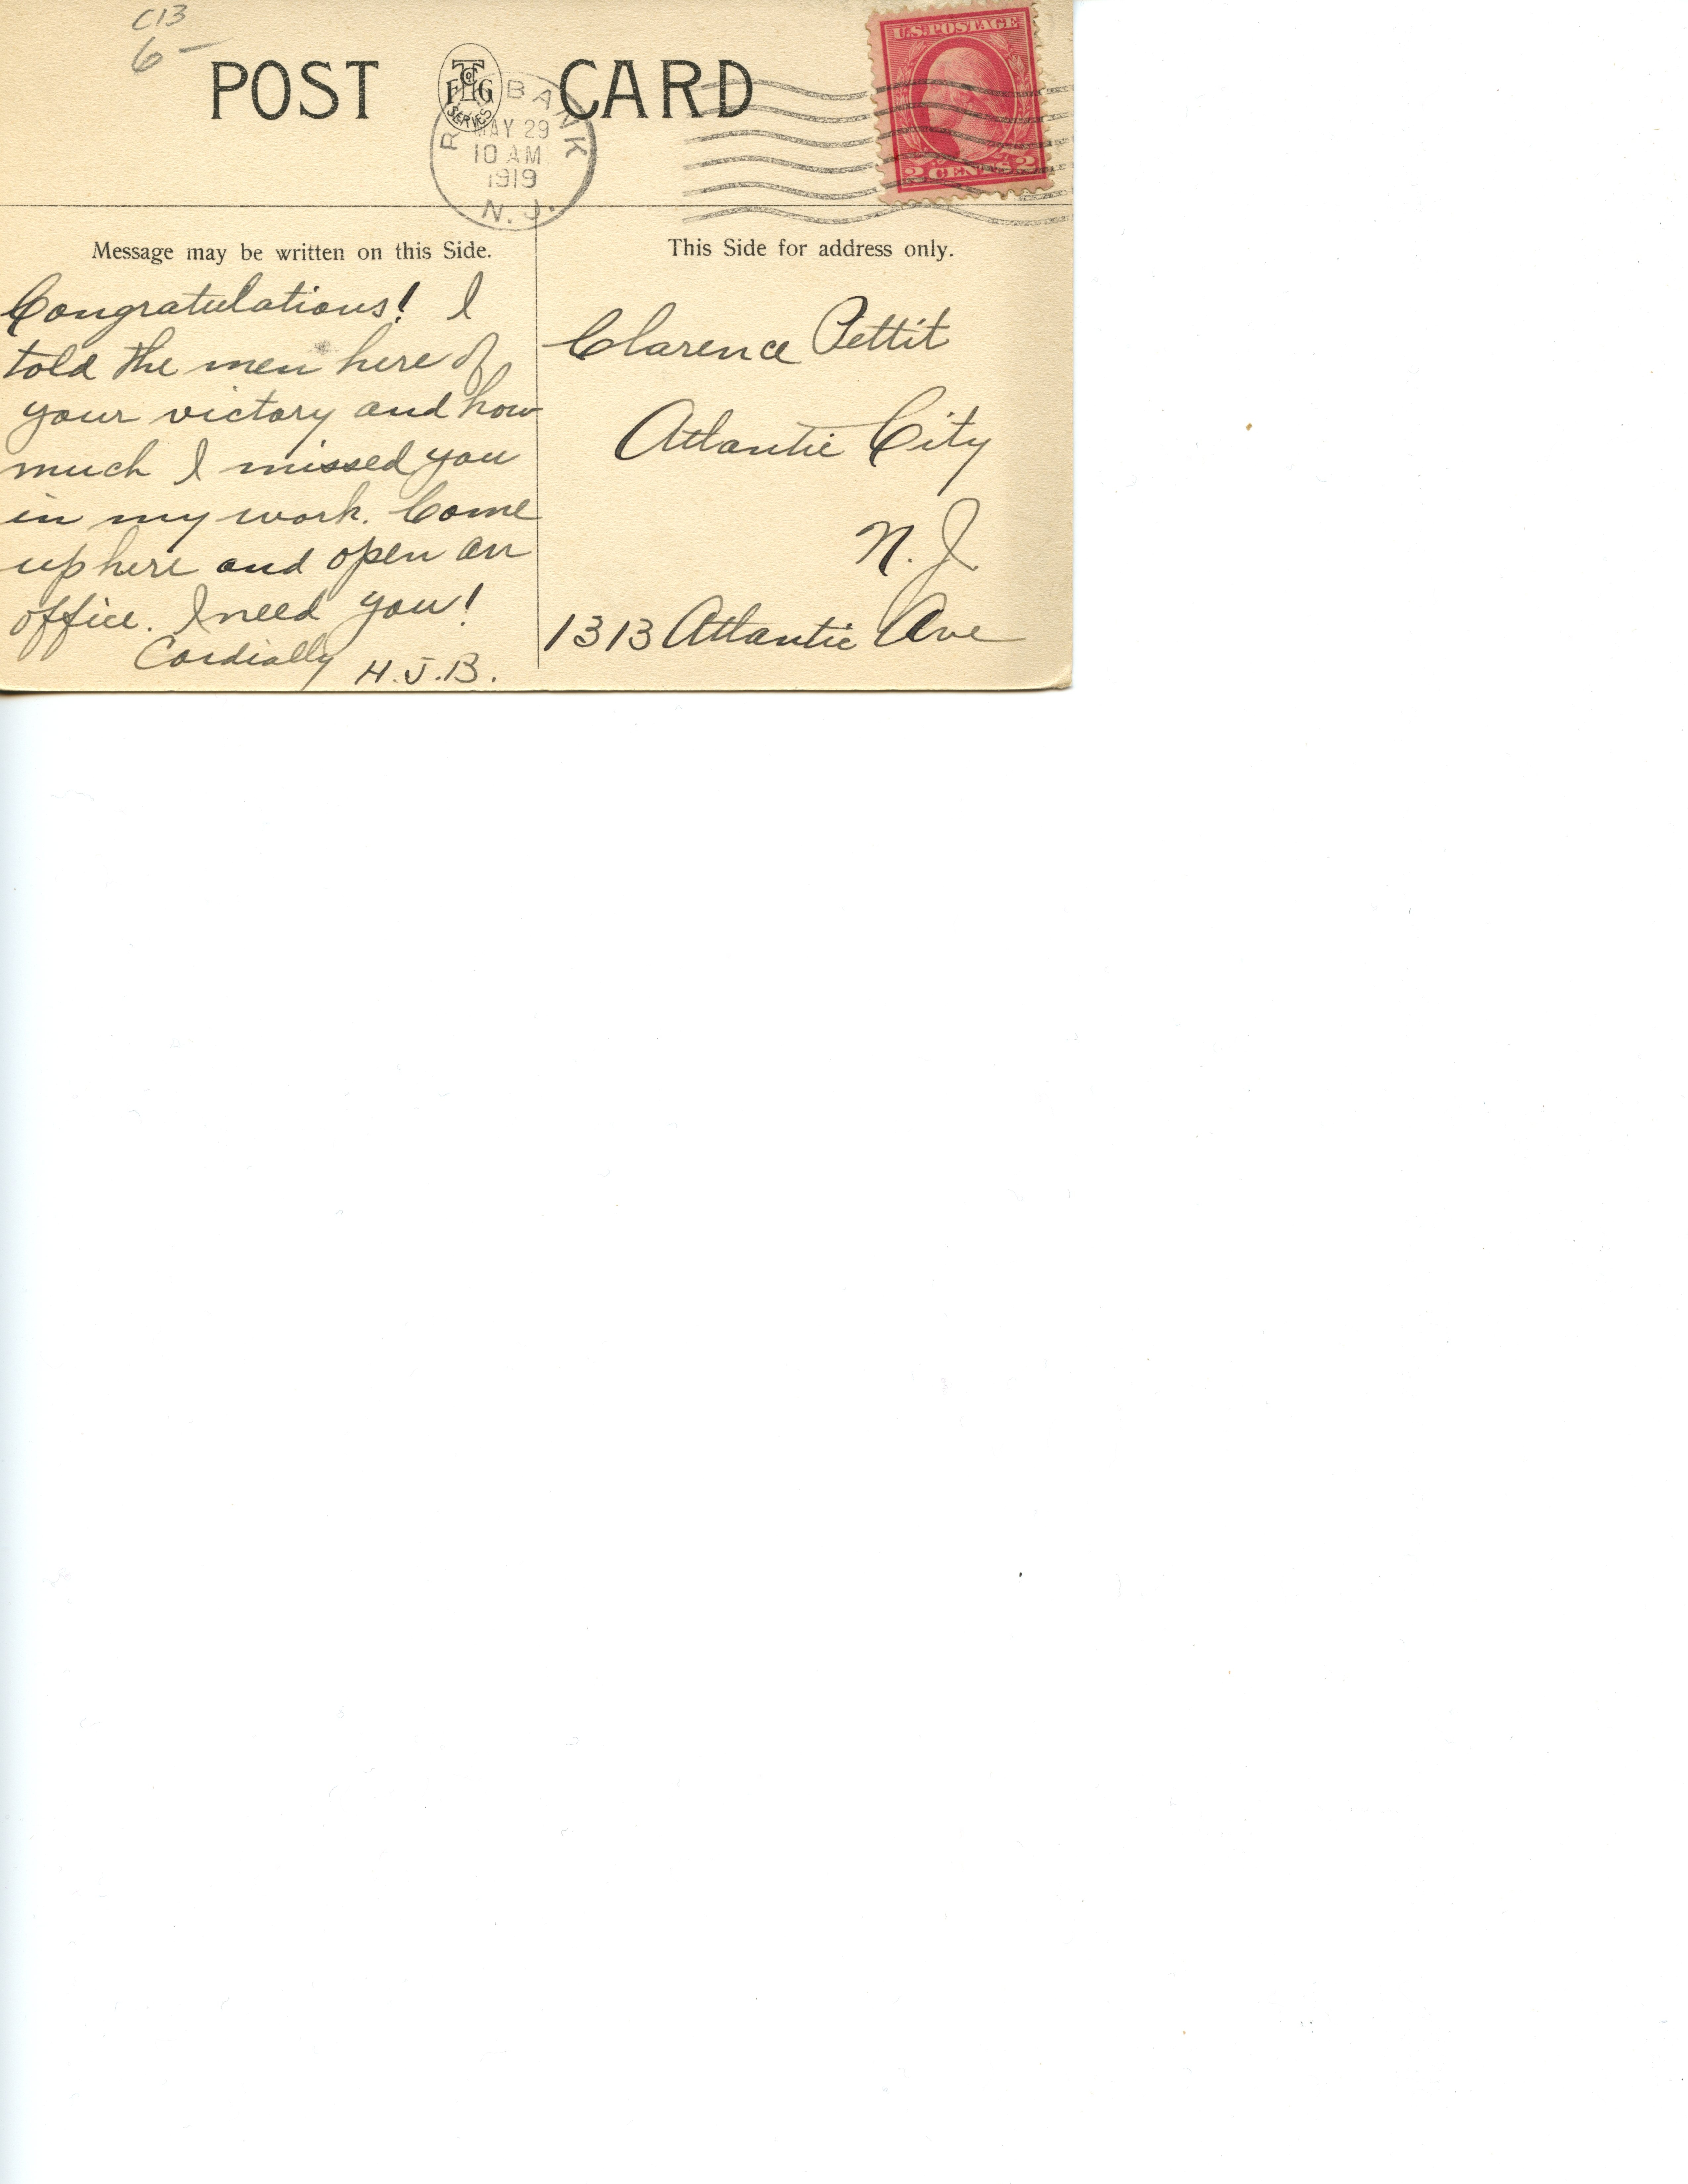 C13
6-
POST CARD
THCo
FHG
SERVES
U.S. POSTAGE
2 CENTS 2
R BANK
MAY 29
10 AM
1919
N. J.
Message may be written on this Side.
Congratulations! I
told the men here of
your victory and how
much I missed you
in my work. Come
up here and open an
office. I need you!
Cordially H.J.B.
This Side for address only.
Clarence Pettit
Atlantic City
N. J.
1313 Atlantic Ave